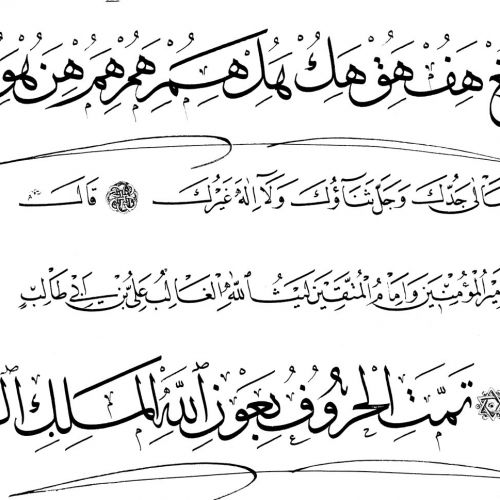 هف هق هك هل هم هم هم هن هو
جدك وجل ثناؤك ولا اله غيرك قالـ
المؤمنين وامام المتقين ليث الله الغالب علي بن ابي طالب
تمت الحروف بعون الله الملك